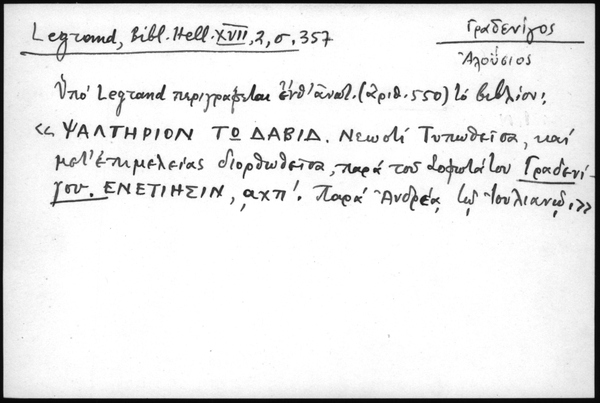 Legrand, Bibl. Hell. XVII, 2, σ. 357
Γραδενίγος
Ἀλούσιος
Ὑπό Legrand περιγράφεται ἐνθ' ἀνωτ. (ἀριθ. 550) τό βιβλίον:
«ΨΑΛΤΗΡΙΟΝ ΤΩ ΔΑΒΙΔ. Νεωστί Τυπωθεῖσα, καί
μετ' ἐπιμελείας διορθωθεῖσα, παρά τοῦ Σοφωτάτου Γραδενί-
γου. ΕΝΕΤΙΗΣΙΝ, αχπ'. Παρά Ἀνδρέᾳ τῷ Ἰουλιανῷ.»